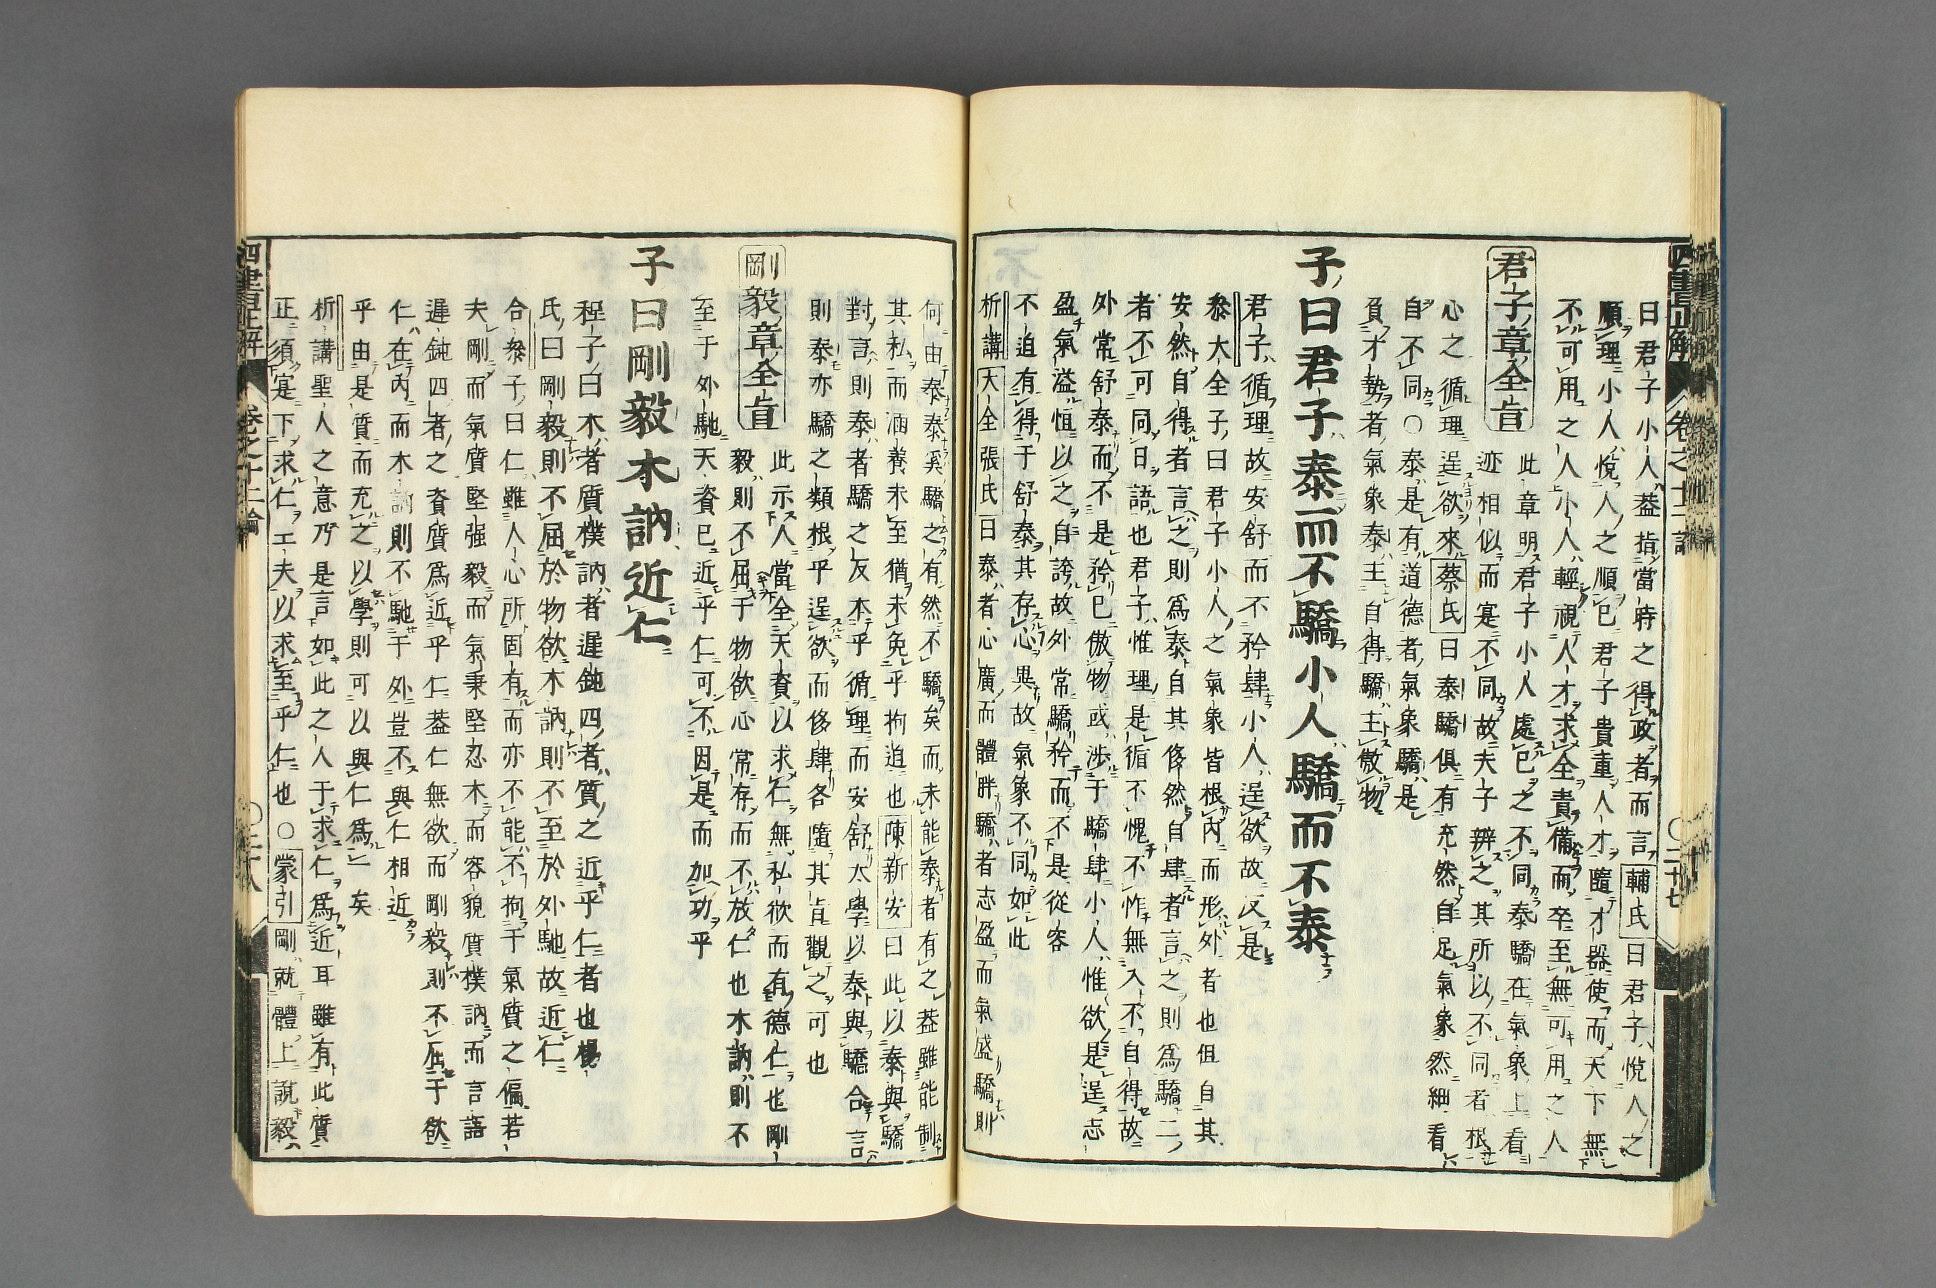 曰君子小人葢指當時之得政者而言輔氏曰君子悅人之
順理小人悅人之順已君子貴重人才隨才器使而天下無
不可用之人小人輕視人才求全責備而卒至無可用之人
君子章全旨
此章明君子小人處已之不同泰驕在氣象上看
迹相似而寔不同故夫子辨之其所以不同者根
心之循理逞欲來蔡氏曰泰驕俱有充然自足氣象然細看
自不同○泰是有道德者氣象驕是
負才勢者氣象泰主自得驕主傲物
子曰君子泰而不驕小人驕而不泰
君子循理故安舒而不矜肆小人逞欲故反是
叅大全子曰君子小人之氣象皆根內而形外者也但自其
安然自得者言之則爲泰自其侈然自肆者言之則爲驕二
者不可同日語也君子惟理是循不愧不怍無入不自得故
外常舒泰而不是矜已傲物或涉于驕肆小人惟欲是逞志
盈氣溢恒以之自誇故外常驕矜而不是從容
不迫有得于舒泰其存心異故氣象不同如此
析講大全張氏曰泰者心廣而體胖驕者志盈而氣盛驕則
何由泰泰奚驕之有然不驕矣而未能泰者有之葢雖能制
其私而涵養未至猶未免乎拘迫也陳新安曰此以泰與驕
對言則泰者驕之反本乎循理而安舒大學以泰與驕合言
則泰亦驕之類根乎逞欲而侈肆各隨其旨觀之可也
剛毅章全旨
此示人當全天資以求仁無私欲而有德仁也剛
毅則不屈于物欲心常存而不放仁也木訥則不
至于外馳天資已近乎仁可不因是而加功乎
子曰剛毅木訥近仁
程子曰木者質樸訥者遲鈍四者質之近乎仁者也楊
氏曰剛毅則不屈於物欲木訥則不至於外馳故近仁
合叅子曰仁雖人心所固有而亦不能不拘于氣質之偏若
夫剛而氣質堅强毅而氣秉堅忍木而容貌質樸訥而言語
遲鈍四者之資質爲近乎仁葢仁無欲而剛毅則不屈于欲
仁在內而木訥則不馳于外豈不與仁相近
乎由是質而充之以學則可以與仁爲一矣
析講聖人之意乃是言如此之人于求仁爲近耳雖有此質
正須寔下求仁工夫以求至乎仁也○蒙引剛就體上說毅
四書正解
卷之十二論
○二十八